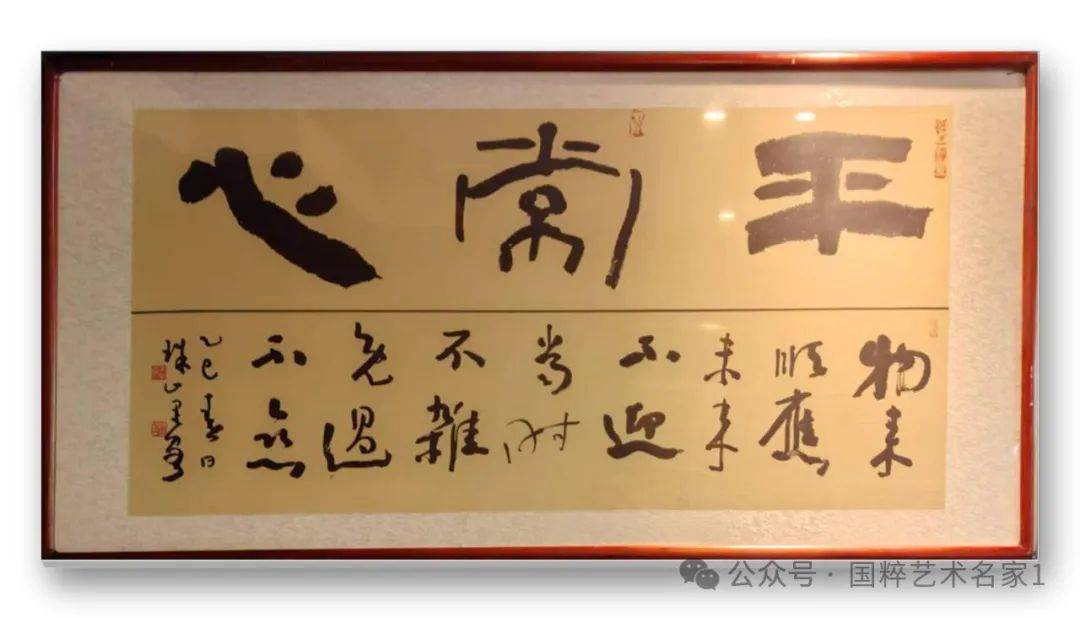 平常心
物来
順應
未来
不迎
当时
不雜
既過
不恋
乙巳春日
珠山
公众号 · 国粹艺术名家1